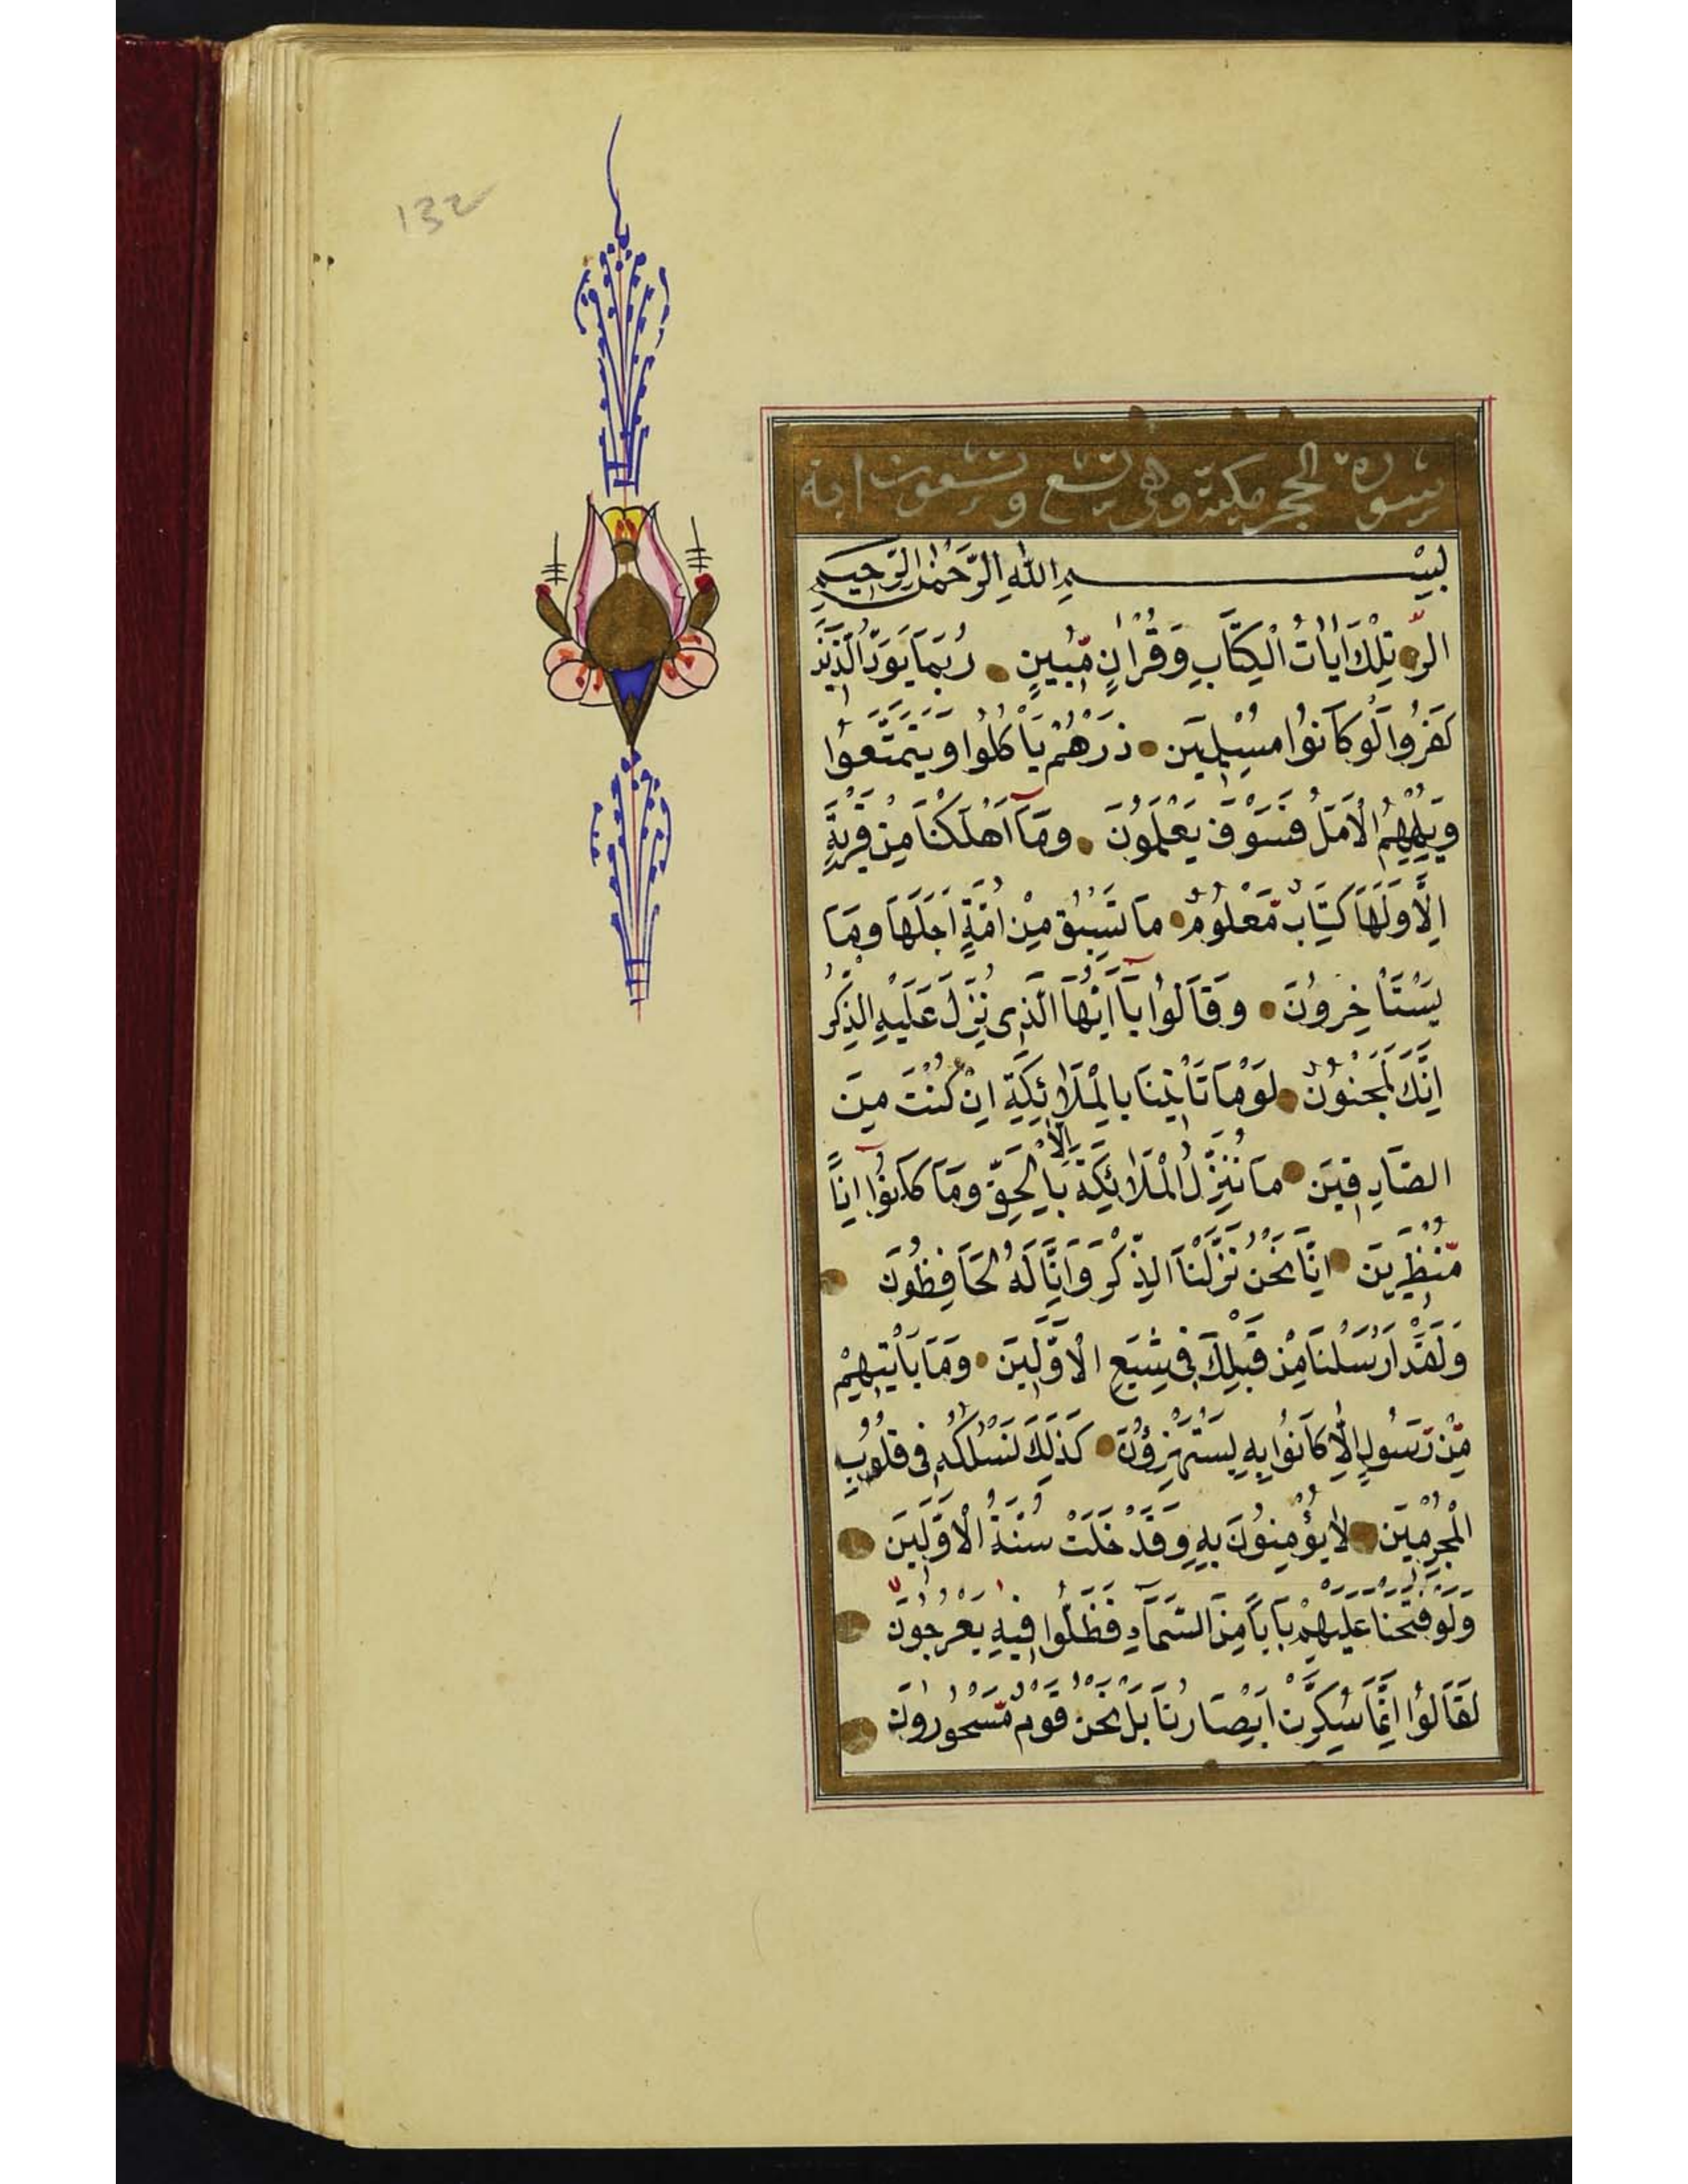 132
سورة الحجر مكية وهي تسع وتسعون اية
بِسْمِ اللهِ الرَّحْمٰنِ الرَّحِيمِ
الر تِلْكَ اٰيَاتُ الْكِتَابِ وَقُرْاٰنٍ مُّبِينٍ رُبَمَا يَوَدُّ الَّذِينَ
كَفَرُوا لَوْ كَانُوا مُسْلِمِينَ ذَرْهُمْ يَاْكُلُوا وَيَتَمَتَّعُوا
وَيُلْهِهِمُ الْاَمَلُ فَسَوْفَ يَعْلَمُونَ وَمَآ اَهْلَكْنَا مِنْ قَرْيَةٍ
اِلَّا وَلَهَا كِتَابٌ مَّعْلُومٌ مَا تَسْبِقُ مِنْ اُمَّةٍ اَجَلَهَا وَمَا
يَسْتَاْخِرُونَ وَقَالُوا يَآ اَيُّهَا الَّذِى نُزِّلَ عَلَيْهِ الذِّكْرُ
اِنَّكَ لَمَجْنُونٌ لَوْ مَا تَاْتِينَا بِالْمَلَائِكَةِ اِنْ كُنْتَ مِنَ
الصَّادِقِينَ مَا نُنَزِّلُ الْمَلَائِكَةَ اِلَّا بِالْحَقِّ وَمَا كَانُوآ اِذًا
مُّنْظَرِينَ اِنَّا نَحْنُ نَزَّلْنَا الذِّكْرَ وَاِنَّا لَهُ لَحَافِظُونَ
وَلَقَدْ اَرْسَلْنَا مِنْ قَبْلِكَ فِى شِيَعِ الْاَوَّلِينَ وَمَا يَاْتِيهِمْ
مِّنْ رَسُولٍ اِلَّا كَانُوا بِهِ يَسْتَهْزِؤُنَ كَذٰلِكَ نَسْلُكُهُ فِى قُلُوبِ
الْمُجْرِمِينَ لَا يُؤْمِنُونَ بِهِ وَقَدْ خَلَتْ سُنَّةُ الْاَوَّلِينَ
وَلَوْ فَتَحْنَا عَلَيْهِمْ بَابًا مِنَ السَّمَآءِ فَظَلُّوا فِيهِ يَعْرُجُونَ
لَقَالُوا اِنَّمَا سُكِّرَتْ اَبْصَارُنَا بَلْ نَحْنُ قَوْمٌ مَّسْحُورُونَ